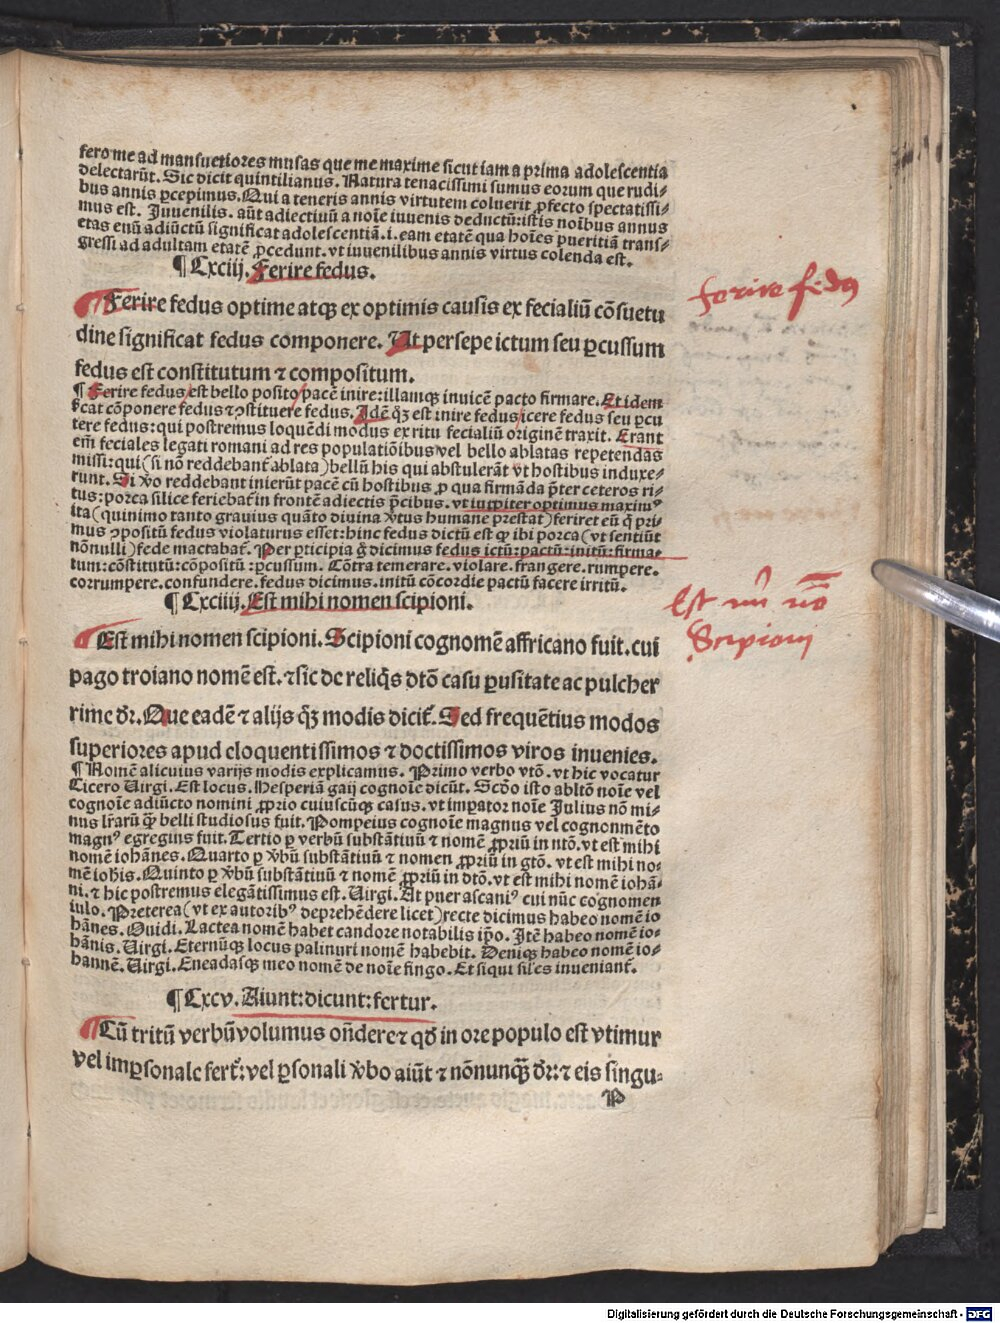 fero me ad mansuetiores musas que me maxime sicut iam a prima adolescentia
delectarūt. Sic dicit quintilianus. Natura tenacissimi sumus eorum que rudi⸗
bus annis ꝑcepimus. Qui a teneris annis virtutem coluerit ꝓfecto spectatissi⸗
mus est. Iuuenilis. aūt adiectiuū a noīe iuuenis deductū: istis noībus annus
etas enū adiūctū significat adolescentiā .i. eam etatē qua hoīes pueritiā trans⸗
gressi ad adultam etatē ꝓcedunt. vt iuuenilibus annis virtus colenda est.
¶ Cxciij. Ferire fedus.
ferire fedus
Ferire fedus optime atqꝫ ex optimis causis ex fecialiū cōsuetu
dine significat fedus componere. Ut persepe ictum seu ꝑcussum
fedus est constitutum ⁊ compositum.
¶ Ferire fedus est bello posito pacē inire: illamqꝫ inuicē pacto firmare. Et idem
fcat cōponere fedus ⁊ ꝯstituere fedus. Idē qꝫ est inire fedus icere fedus seu ꝑcu
tere fedus: qui postremus loquēdi modus ex ritu fecialiū originē traxit. Erant
em̄ feciales legati romani ad res populatiōibus vel bello ablatas repetendas
missi: qui (si nō reddebant̄ ablata) bellū his qui abstulerāt vt hostibus induxe⸗
runt. Si v̄o reddebant inierūt pacē cū hostibus ꝓ qua firmāda p̄ter ceteros ri⸗
tus: porca silice feriebat̄ in frontē adiectis p̄cibus. vt iuppiter optimus maximꝰ
ita (quinimo tanto grauius quāto diuina v̄tus humane prestat) feriret eū q̄ pri⸗
mus ꝯpositū fedus violaturus esset: hinc fedus dictū est ꝙ ibi porca (vt sentiūt
nōnulli) fede mactabat̄. Per ꝑticipia q̄ dicimus fedus ictū: pactū: initū: firma⸗
tum: cōstitutū: cōpositū: ꝑcussum. Cōtra temerare. violare. frangere. rumpere.
corrumpere. confundere. fedus dicimus. initū cōcordie pactū facere irritū.
¶ Cxciiij. Est mihi nomen scipioni.
Est mi no
Scipioni
Est mihi nomen scipioni. Scipioni cognomē affricano fuit. cui
pago troiano nomē est. ⁊ sic de reliq̄s dtō casu ꝑusitate ac pulcher
rime dr̄. Que eadē ⁊ alijs q̄ꝫ modis dicit̄. Sed frequētius modos
superiores apud eloquentissimos ⁊ doctissimos viros inuenies.
¶ Nomē alicuius varijs modis explicamus. Primo verbo vtō. vt hic vocatur
Cicero Uirgi. Est locus. Hesperiā gaij cognoīe dicūt. Scd̄o isto abltō noīe vel
cognoīe adiūcto nomini ꝓprio cuiuscūqꝫ casus. vt imꝑator noīe Julius nō mi⸗
nus lr̄arū qꝫ belli studiosus fuit. Pompeius cognoīe magnus vel cognonmēto
magnꝰ egregius fuit. Tertio ꝑ verbū substātiuū ⁊ nomē ꝓpriū in ntō. vt est mihi
nomē iohānes. Quarto ꝑ v̄bū substātiuū ⁊ nomen ꝓpriū in gtō. vt est mihi no⸗
mē ioh̄is. Quinto ꝑ v̄bū substātiuū ⁊ nomē ꝓpriū in dtō. vt est mihi nomē iohā⸗
ni. ⁊ hic postremus elegātissimus est. Uirgi. At puer ascaniꝰ cui nūc cognomen
iulo. Preterea (vt ex autoribꝰ deprehēdere licet) recte dicimus habeo nomē io
hānes. Ouidi. Lactea nomē habet candore notabilis ip̄o. Itē habeo nomē io⸗
hānis. Uirgi. Eternūqꝫ locus palinuri nomē habebit. Deniqꝫ habeo nomē io⸗
hannē. Uirgi. Eneadasqꝫ meo nomē de noīe fingo. Et siqui sil̄es inueniant̄.
¶ Cxcv. Aiunt: dicunt: fertur.
Cū tritū verbū volumus oñdere ⁊ qd̄ in ore populo est vtimur
vel imꝑsonale fert̄: vel ꝑsonali v̄bo aiūt ⁊ nōnunqꝫ̄ dr̄: ⁊ eis singu⸗
P
Digitalisierung gefördert durch die Deutsche Forschungsgemeinschaft - DFG